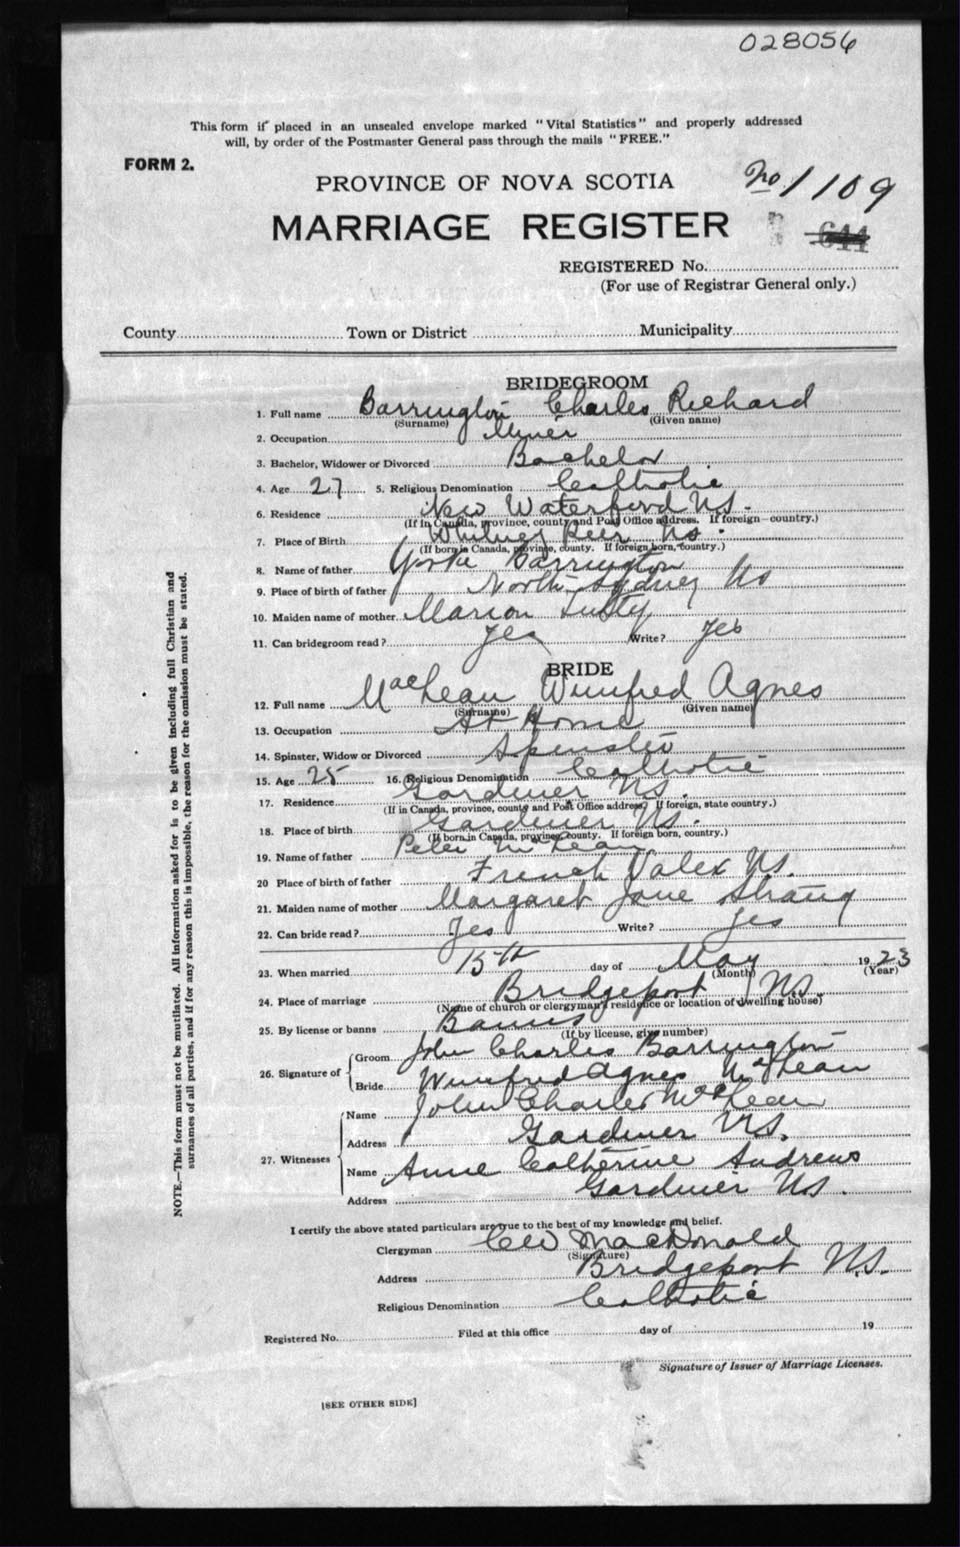 028056
This form if placed in an unsealed envelope marked "Vital Statistics" and properly addressed
will, by order of the Postmaster General pass through the mails "FREE."
FORM 2.
PROVINCE OF NOVA SCOTIA
No 1109
MARRIAGE REGISTER
644
REGISTERED No.
(For use of Registrar General only.)
County Town or District Municipality
BRIDEGROOM
1. Full name Barrington Charles Richard
(Surname) (Given name)
2. Occupation Miner
3. Bachelor, Widower or Divorced Bachelor
4. Age 27 5. Religious Denomination Catholic
6. Residence New Waterford NS.
(If in Canada, province, county and Post Office address. If foreign—country.)
7. Place of Birth Whitney Pier NS.
(If born in Canada, province, county. If foreign born, country.)
8. Name of father Yorke Barrington
9. Place of birth of father North Sydney NS
10. Maiden name of mother Marion
11. Can bridegroom read? Yes Write? Yes
BRIDE
12. Full name MacLean Winifred Agnes
(Surname) (Given name)
13. Occupation At Home
14. Spinster, Widow or Divorced Spinster
15. Age 25 16. Religious Denomination Catholic
17. Residence Gardiner NS.
(If in Canada, province, county and Post Office address. If foreign, state country.)
18. Place of birth Gardiner NS.
(If born in Canada, province, county. If foreign born, country.)
19. Name of father Peter McLean
20 Place of birth of father French Valex NS.
21. Maiden name of mother Margaret Jane Strang
22. Can bride read? Yes Write? Yes
23. When married 15th day of May 1923
(Month) (Year)
24. Place of marriage Bridgeport NS.
(Name of church or clergyman's residence or location of dwelling house)
25. By license or banns Banns
(If by license, give number)
26. Signature of Groom John Charles Barrington
Bride Winifred Agnes McLean
27. Witnesses Name John Charles MacLean
Address Gardiner NS.
Name Anne Catherine Andrews
Address Gardiner NS.
I certify the above stated particulars are true to the best of my knowledge and belief.
Clergyman CW MacDonald
(Signature)
Address Bridgeport N.S.
Religious Denomination Catholic
Registered No. Filed at this office day of 19
Signature of Issuer of Marriage Licenses.
[SEE OTHER SIDE]
NOTE.—This form must not be mutilated. All information asked for is to be given including full Christian and
surnames of all parties, and if for any reason this is impossible, the reason for the omission must be stated.